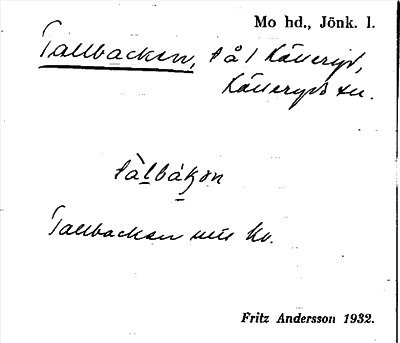 Mo hd., Jönk. l.
Tallbacken, t å 1 Källeryd,
Källeryds sn.
tàlbákən
Tallbacken
Fritz Andersson 1932.